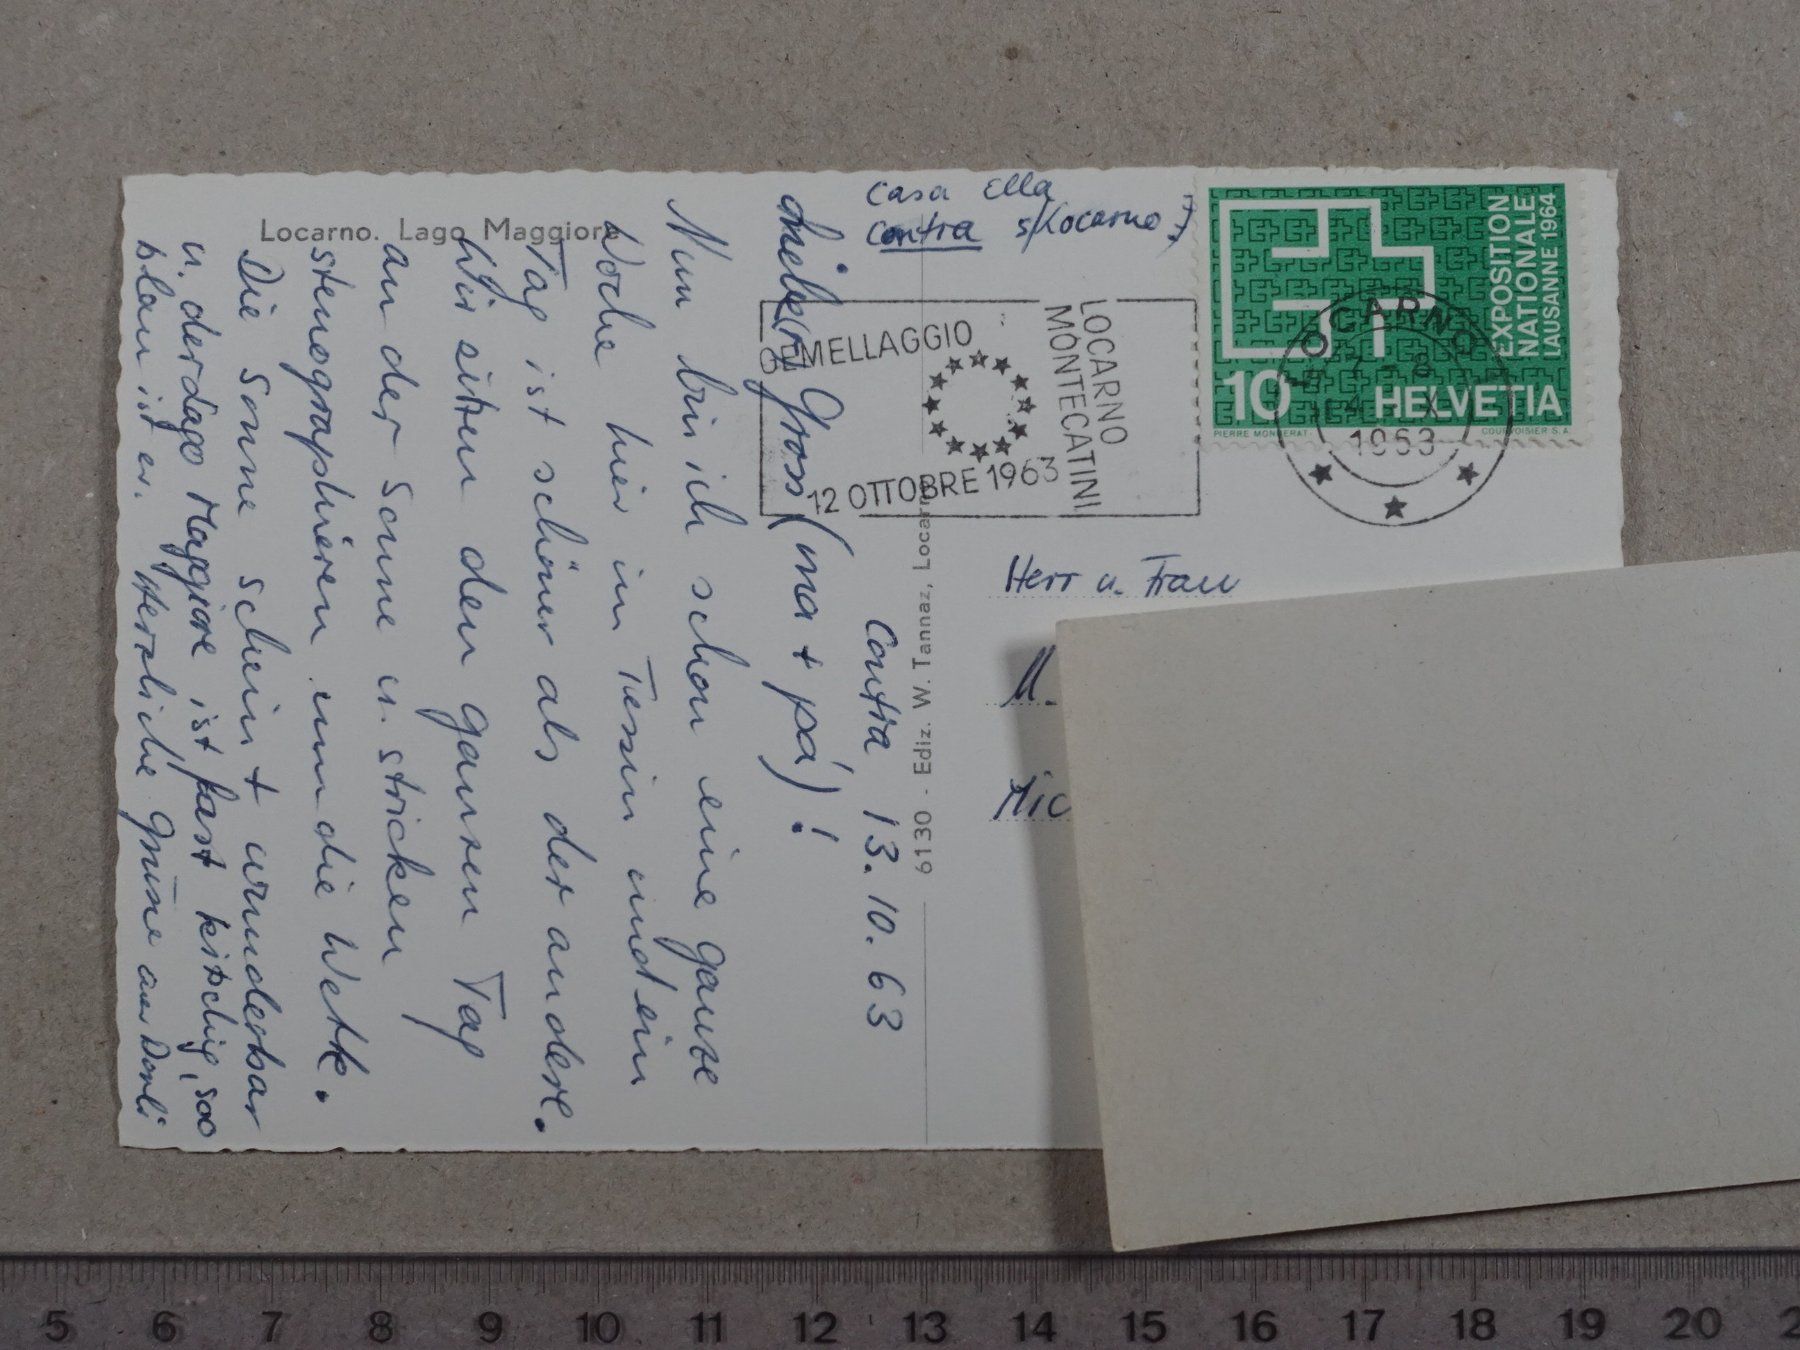 Locarno. Lago Maggiore
casa Ella
contra s/Locarno
EXPOSITION
NATIONALE
LAUSANNE 1964
10 HELVETIA
PIERRE MONNERAT COURVOISIER S.A.
LOCARNO
1963
GEMELLAGGIO
LOCARNO
MONTECATINI
12 OTTOBRE 1963
6130 - Ediz. W. Tannaz, Locarno
Contra 13. 10. 63
Gross (ma + pa)!
Nun bin ich schon eine ganze
Woche hier im Tessin und ein
Tag ist schöner als der andere.
Wir sitzen den ganzen Tag
an der Sonne u. stricken
stenographieren um die Wette.
Die Sonne scheint wunderbar
u. der Lago Maggiore ist fast kitschig, soo
blau ist er. Herzliche Grüsse
Herr u. Frau
M.
Mic
5 6 7 8 9 10 11 12 13 14 15 16 17 18 19 20 2